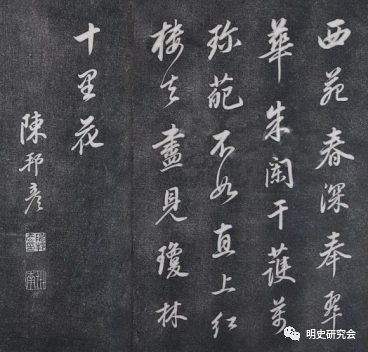 西苑春深奉翠
華朱闌干護萬
珎葩不如直上紅
樓去盡見瓊林
十里花
陳邦彥
明史研究会